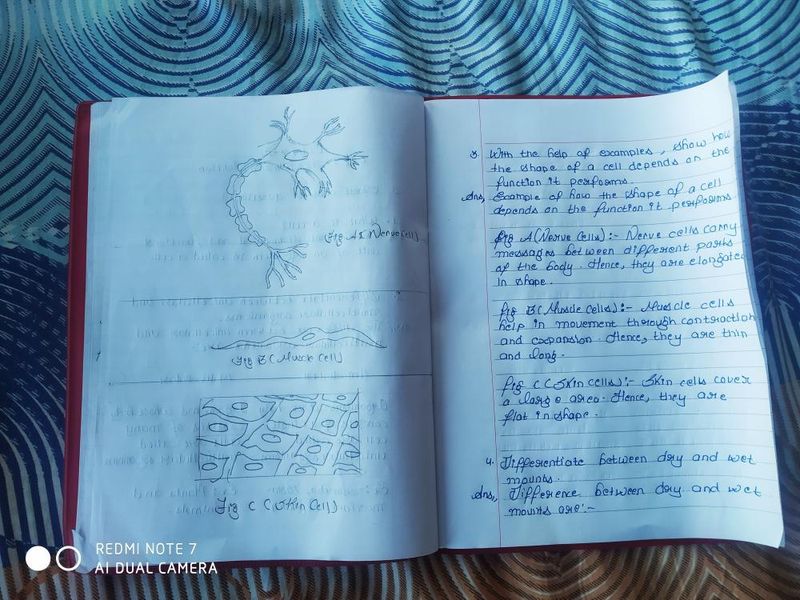 Fig A (Nerve Cell)
Fig B (Muscle Cell)
Fig C (Skin Cell)
3. With the help of examples, show how
the shape of a cell depends on the
function it performs.
Ans, Example of how the shape of a cell
depends on the function it performs
Fig A (Nerve Cells) :- Nerve cells carry
messages between different parts
of the body. Hence, they are elongated
in shape.
Fig B (Muscle Cells) :- Muscle cells
help in movement through contraction
and expansion. Hence, they are thin
and long.
Fig C (Skin Cells) :- Skin cells cover
a large area. Hence, they are
flat in shape.
4. Differentiate between dry and wet
mounts.
Ans, Difference between dry and wet
mounts are :-
REDMI NOTE 7
AI DUAL CAMERA